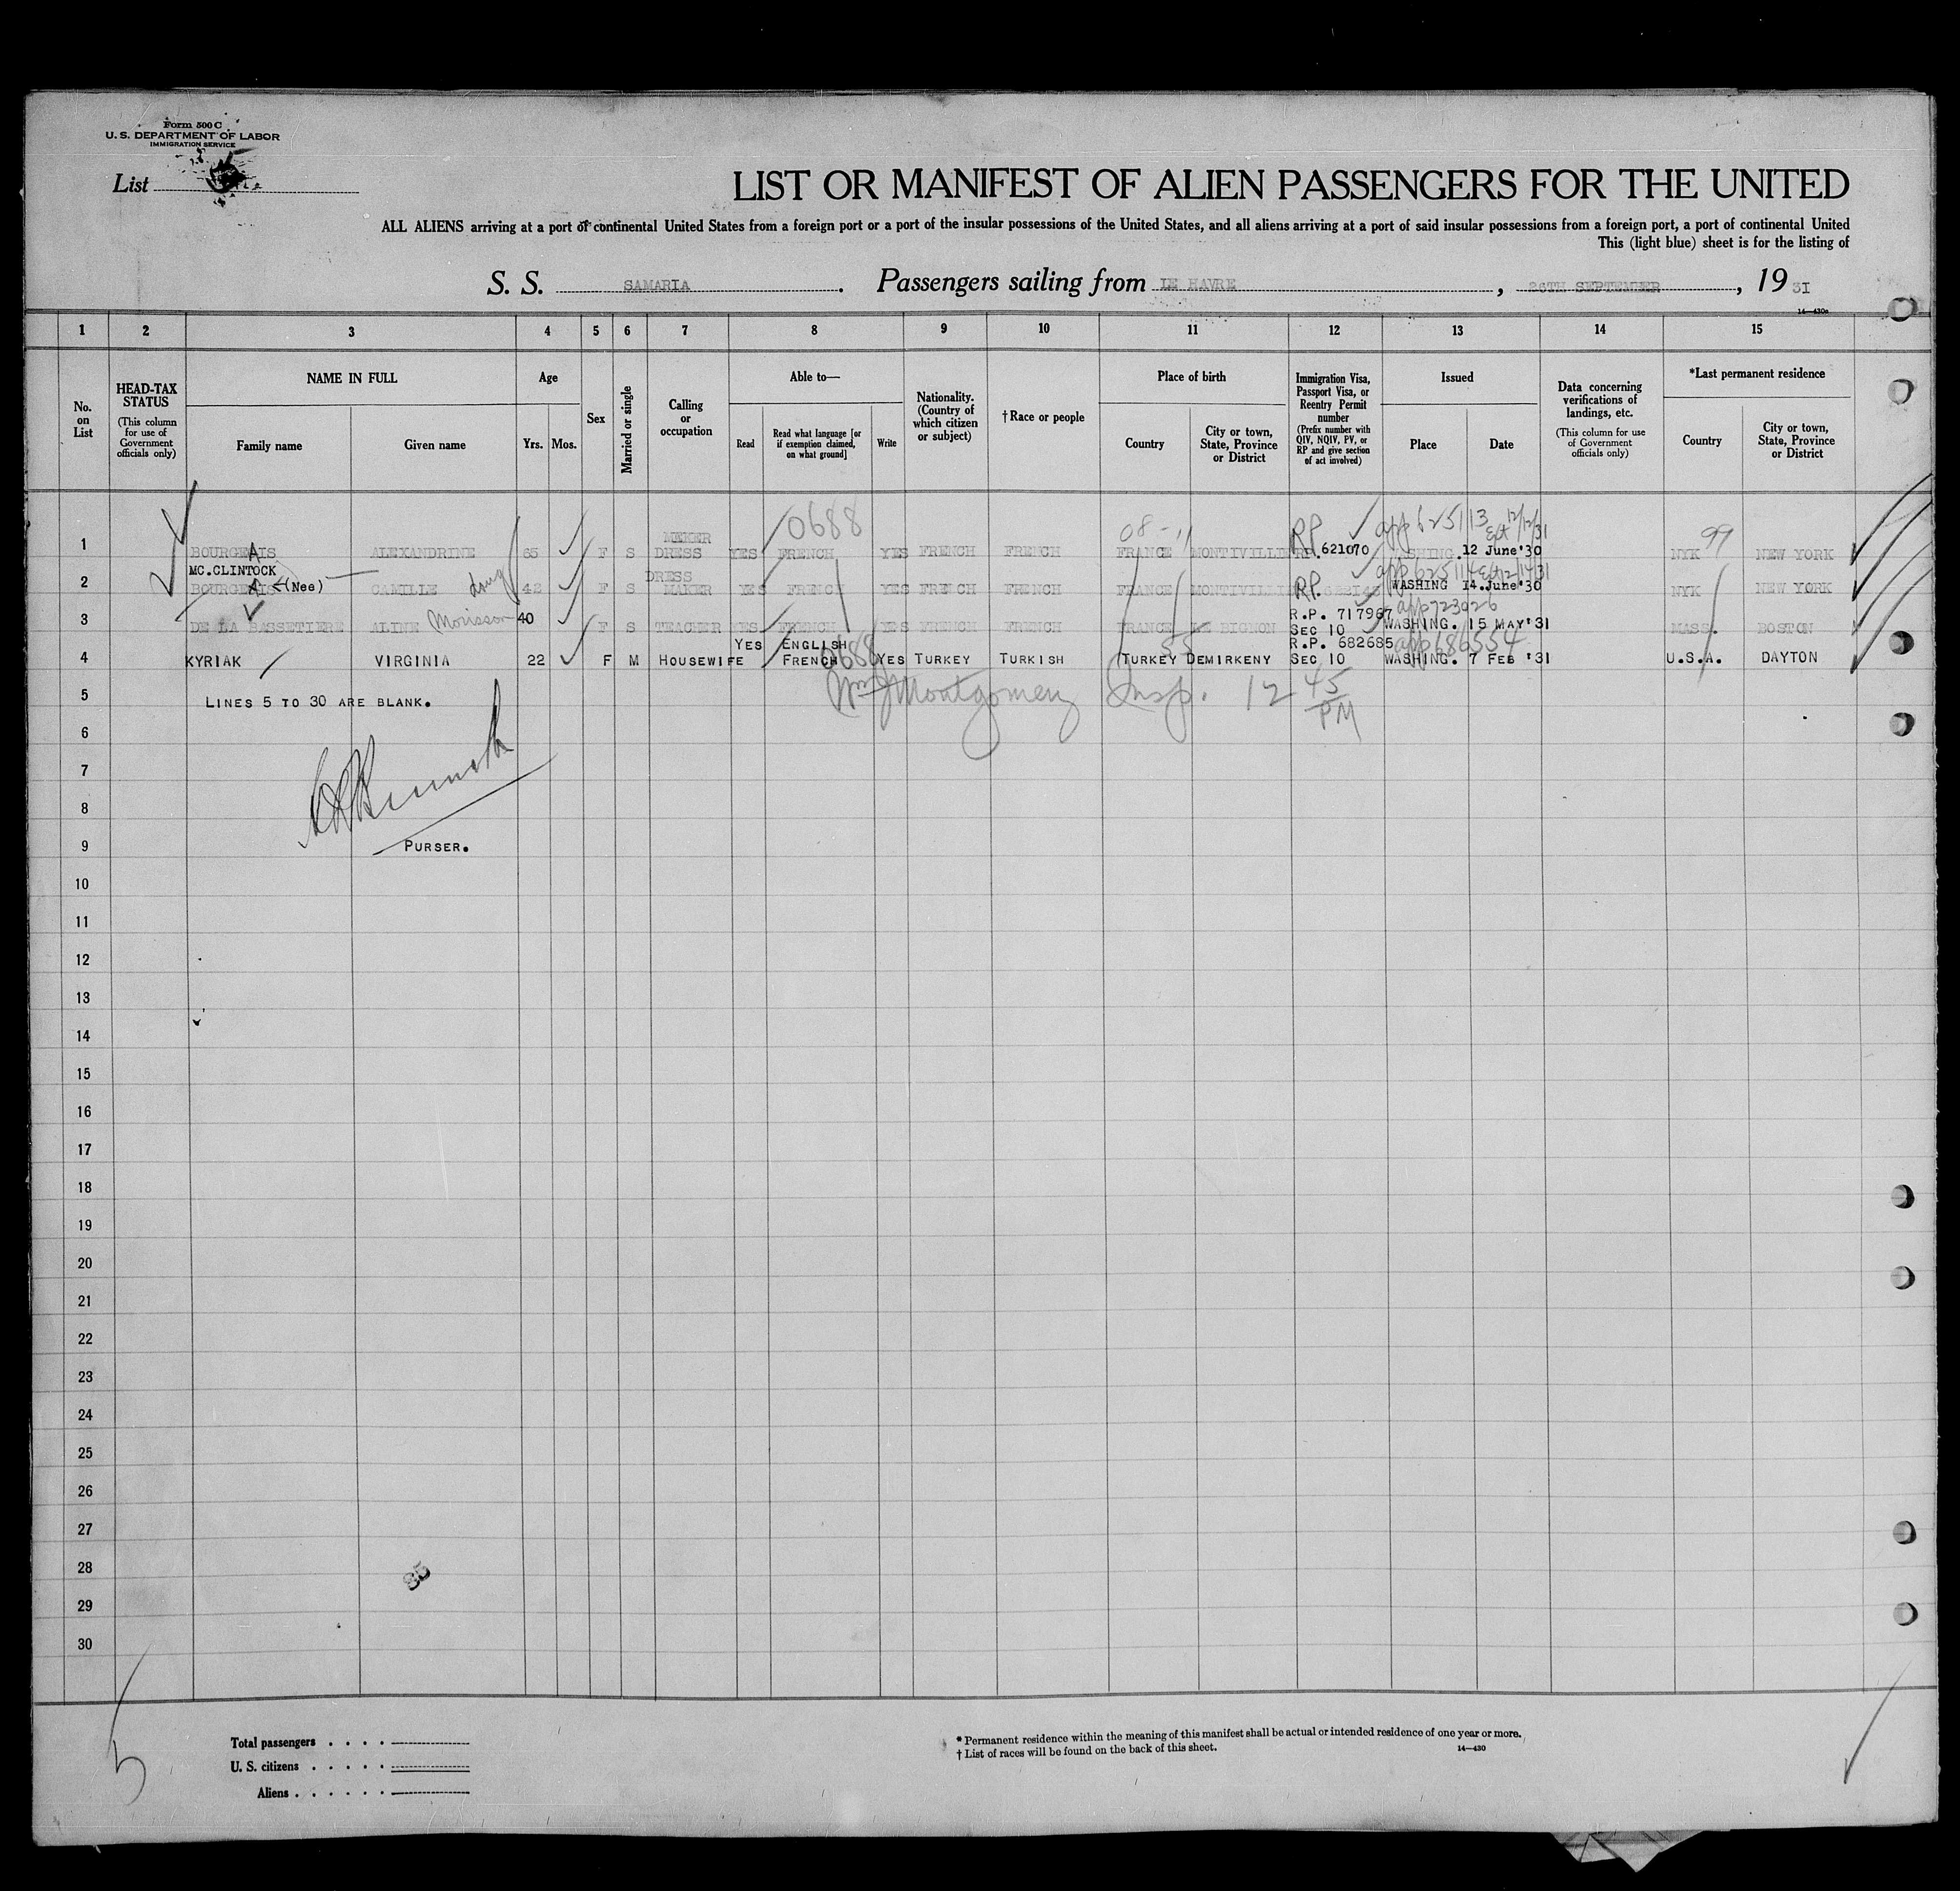 Form 500 C
U. S. DEPARTMENT OF LABOR
IMMIGRATION SERVICE
List
LIST OR MANIFEST OF ALIEN PASSENGERS FOR THE UNITED
ALL ALIENS arriving at a port of continental United States from a foreign port or a port of the insular possessions of the United States, and all aliens arriving at a port of said insular possessions from a foreign port, a port of continental United
This (light blue) sheet is for the listing of
S. S. SAMARIA. Passengers sailing from LE HAVRE, 26TH SEPTEMBER, 1931
14—430a
1 2 3 4 5 6 7 8 9 10 11 12 13 14 15
No. on List
HEAD-TAX STATUS (This column for use of Government officials only)
NAME IN FULL Family name Given name
Age Yrs. Mos.
Sex
Married or single
Calling or occupation
Able to— Read Read what language [or if exemption claimed, on what ground] Write
Nationality. (Country of which citizen or subject)
† Race or people
Place of birth Country City or town, State, Province or District
Immigration Visa, Passport Visa, or Reentry Permit number (Prefix number with QIV, NQIV, PV, or RP and give section of act involved)
Issued Place Date
Data concerning verifications of landings, etc. (This column for use of Government officials only)
*Last permanent residence Country City or town, State, Province or District
0688 08-11 RP app 625113 Ext 12/12/31 99
MEKER
1 BOURGEAIS A ALEXANDRINE 65 F S DRESS YES FRENCH YES FRENCH FRENCH FRANCE MONTIVILLIE RP. 621070 WASHING. 12 June '30 NYK NEW YORK
MC.CLINTOCK DRESS RP. app 625114 Ext 12/14/31
2 BOURGEAIS A (Nee) CAMILLE 42 F S MAKER YES FRENCH YES FRENCH FRENCH FRANCE MONTIVILLI WASHING 14.June '30 NYK NEW YORK
R.P. 717967 app 723026
3 DE LA BASSETIERE ALINE Morisson 40 F S TEACHER YES FRENCH YES FRENCH FRENCH FRANCE LE BIGNON SEC 10 WASHING. 15 MAY '31 MASS. BOSTON
YES ENGLISH 0688 55 R.P. 682685 app 686554
4 KYRIAK VIRGINIA 22 F M HOUSEWIFE FRENCH YES TURKEY TURKISH TURKEY DEMIRKENY SEC 10 WASHING. 7 FEB '31 U.S.A. DAYTON
5 LINES 5 TO 30 ARE BLANK. Wm J Montgomery Insp. 12 45 PM
6
7
8
9 PURSER.
10
11
12
13
14
15
16
17
18
19
20
21
22
23
24
25
26
27
28
29
30
85
5
Total passengers . . . .
U. S. citizens . . . . .
Aliens . . . . . .
* Permanent residence within the meaning of this manifest shall be actual or intended residence of one year or more.
† List of races will be found on the back of this sheet.
14—430